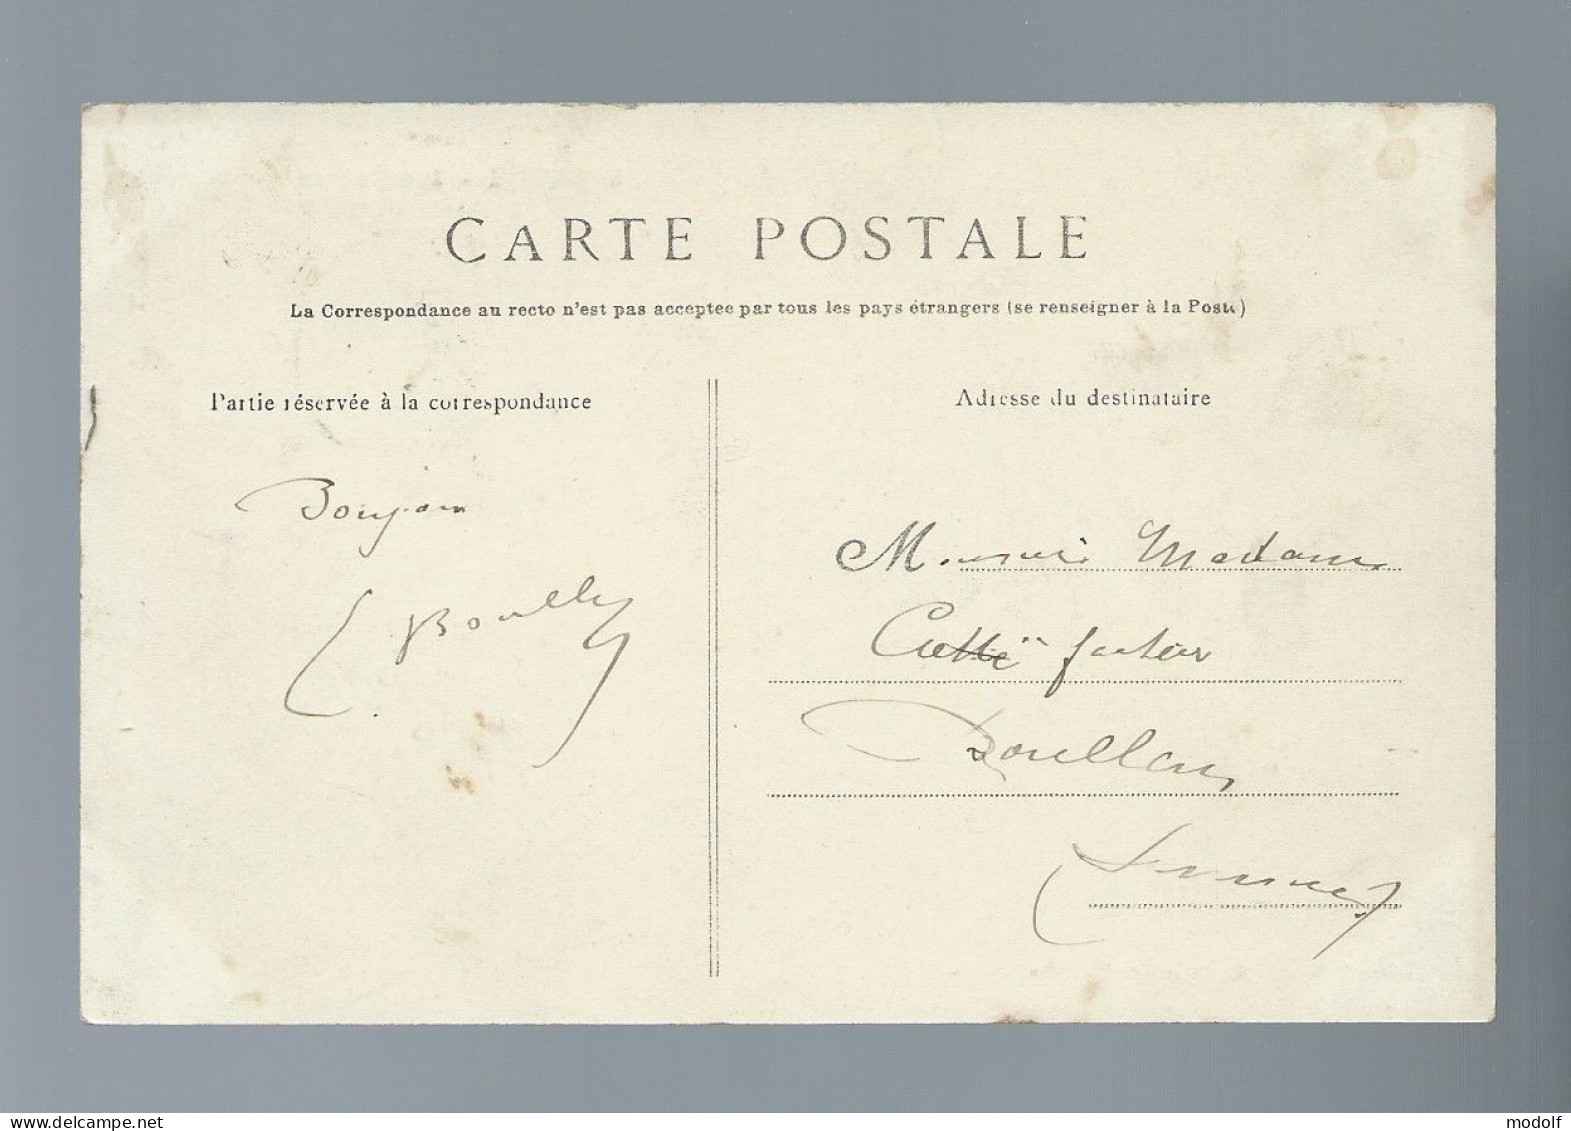 CARTE POSTALE
La Correspondance au recto n'est pas acceptee par tous les pays étrangers (se renseigner à la Poste)
Partie réservée à la correspondance
Adresse du destinataire
Bonjour
Boully
Monsieur Madame
facteur
Doullens
Somme
www.delcampe.net
modolf